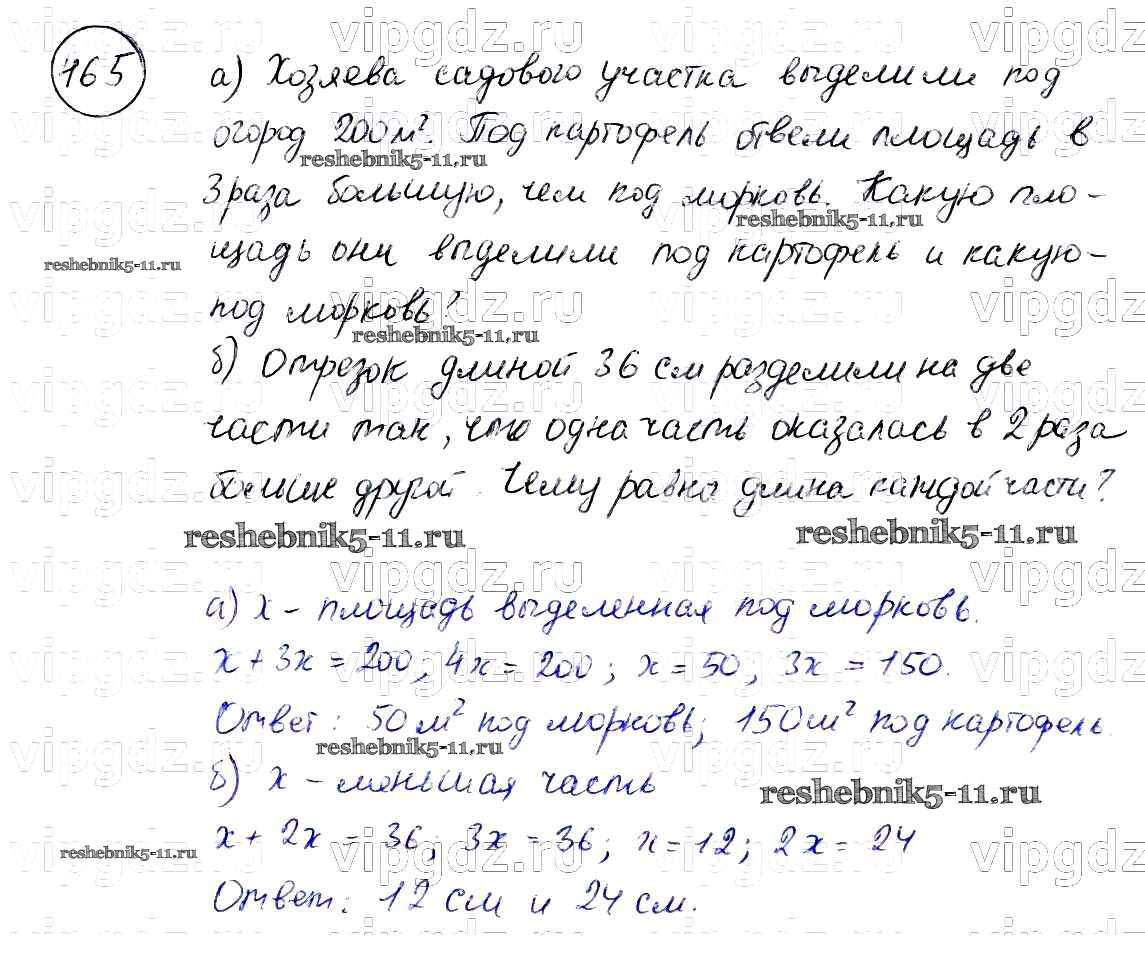 165
а) Хозяева садового участка выделили под
огород 200 м². Под картофель отвели площадь в
3 раза большую, чем под морковь. Какую пло-
щадь они выделили под картофель и какую-
под морковь?
б) Отрезок длиной 36 см разделили на две
части так, что одна часть оказалась в 2 раза
больше другой. Чему равна длина каждой части?
reshebnik5-11.ru
а) x - площадь выделенная под морковь.
x + 3x = 200; 4x = 200; x = 50; 3x = 150.
Ответ: 50 м² под морковь; 150 м² под картофель.
б) x - меньшая часть
reshebnik5-11.ru
x + 2x = 36; 3x = 36; x = 12; 2x = 24
Ответ: 12 см и 24 см.
vipgdz.ru